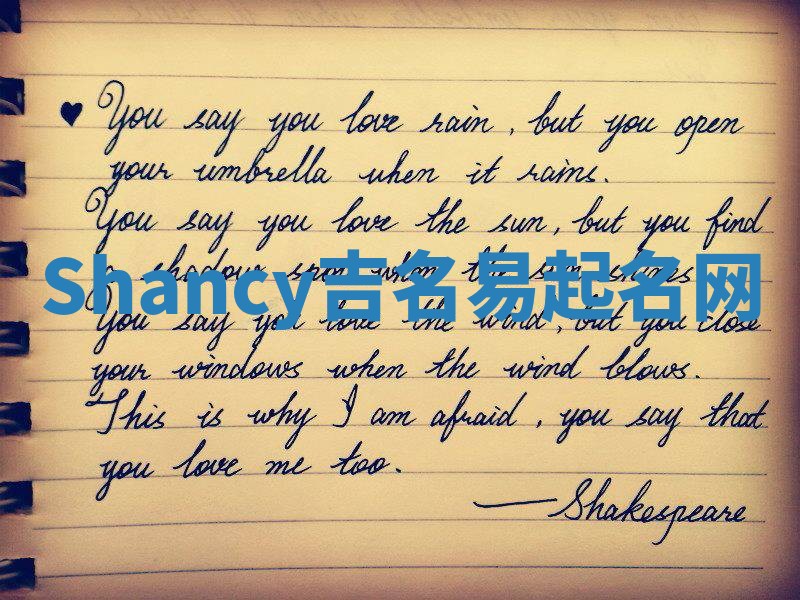 ♥ You say you love rain, but you open
your umbrella when it rains.
You say you love the sun, but you find
a shadow spot when the sun shines
Shancy吉名易起名网
You say you love the wind, but you close
your windows when the wind blows.
This is why I am afraid, you say that
you love me too.
— Shakespeare